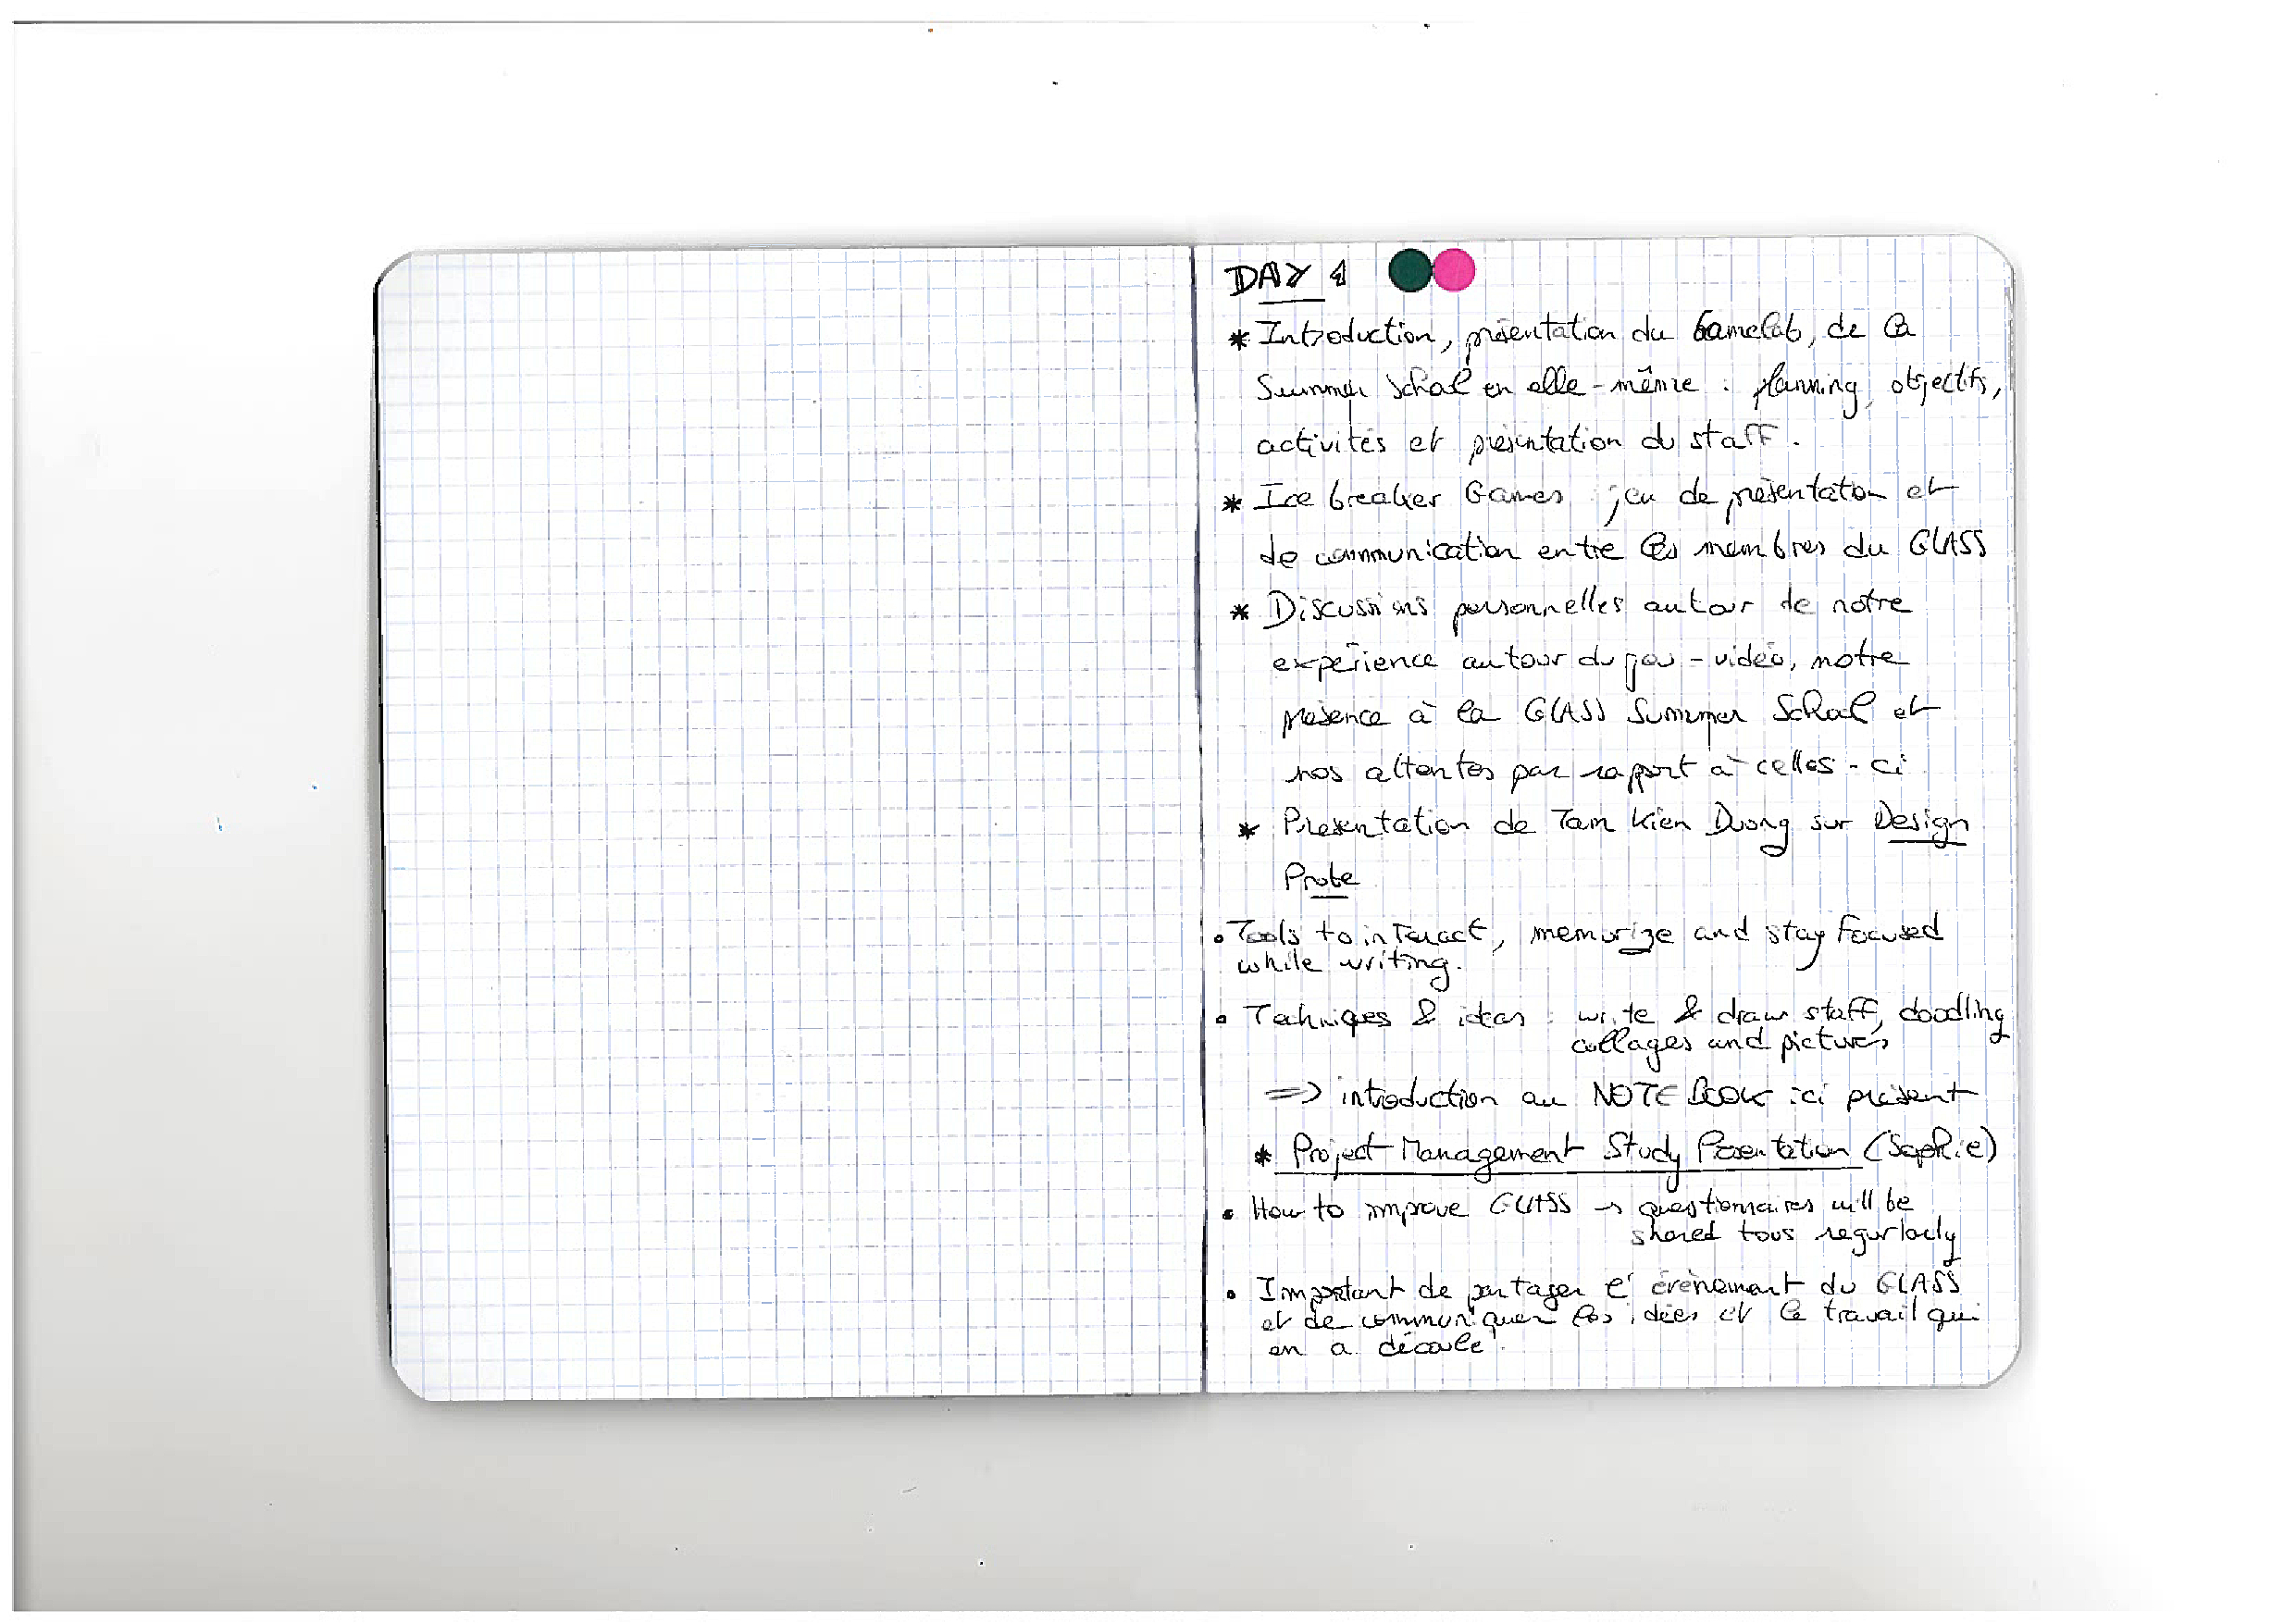 DAY 1
* Introduction, présentation du Gamelab, de la
Summer School en elle-même : planning, objectifs,
activités et présentation du staff.
* Ice breaker Games : jeu de présentation et
de communication entre les membres du GLASS
* Discussions personnelles autour de notre
expérience autour du jeu-vidéo, notre
présence à la GLASS Summer School et
nos attentes par rapport à celles-ci
* Présentation de Tam Kien Duong sur Design
Probe
• Tools to interact, memorize and stay focused
while writing.
• Techniques & ideas : write & draw staff, doodling
collages and pictures
=> introduction au NOTEBOOK ici présent
* Project Management Study Presentation (Sophie)
• How to improve GLASS → questionnaires will be
shared to us regurlarly
• Important de partager l'évènement du GLASS
et de communiquer les idées et le travail qui
en a découlé.